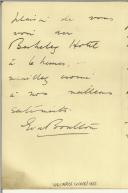 plaisir de vous
voir au
Berkeley Hotel
à 6 heures, -
veuillez croire
à nos meilleurs
sentiments.